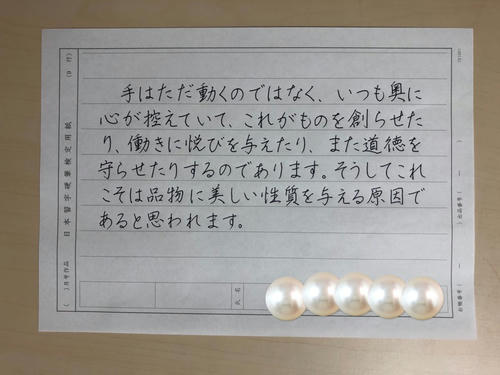 手はただ動くのではなく、いつも奥に
心が控えていて、これがものを創らせた
り、働きに悦びを与えたり、また道徳を
守らせたりするのであります。そうしてこれ
こそは品物に美しい性質を与える原因で
あると思われます。
(9行)
日本習字硬筆検定用紙
( )月手作品
氏名
出品番号(ー)